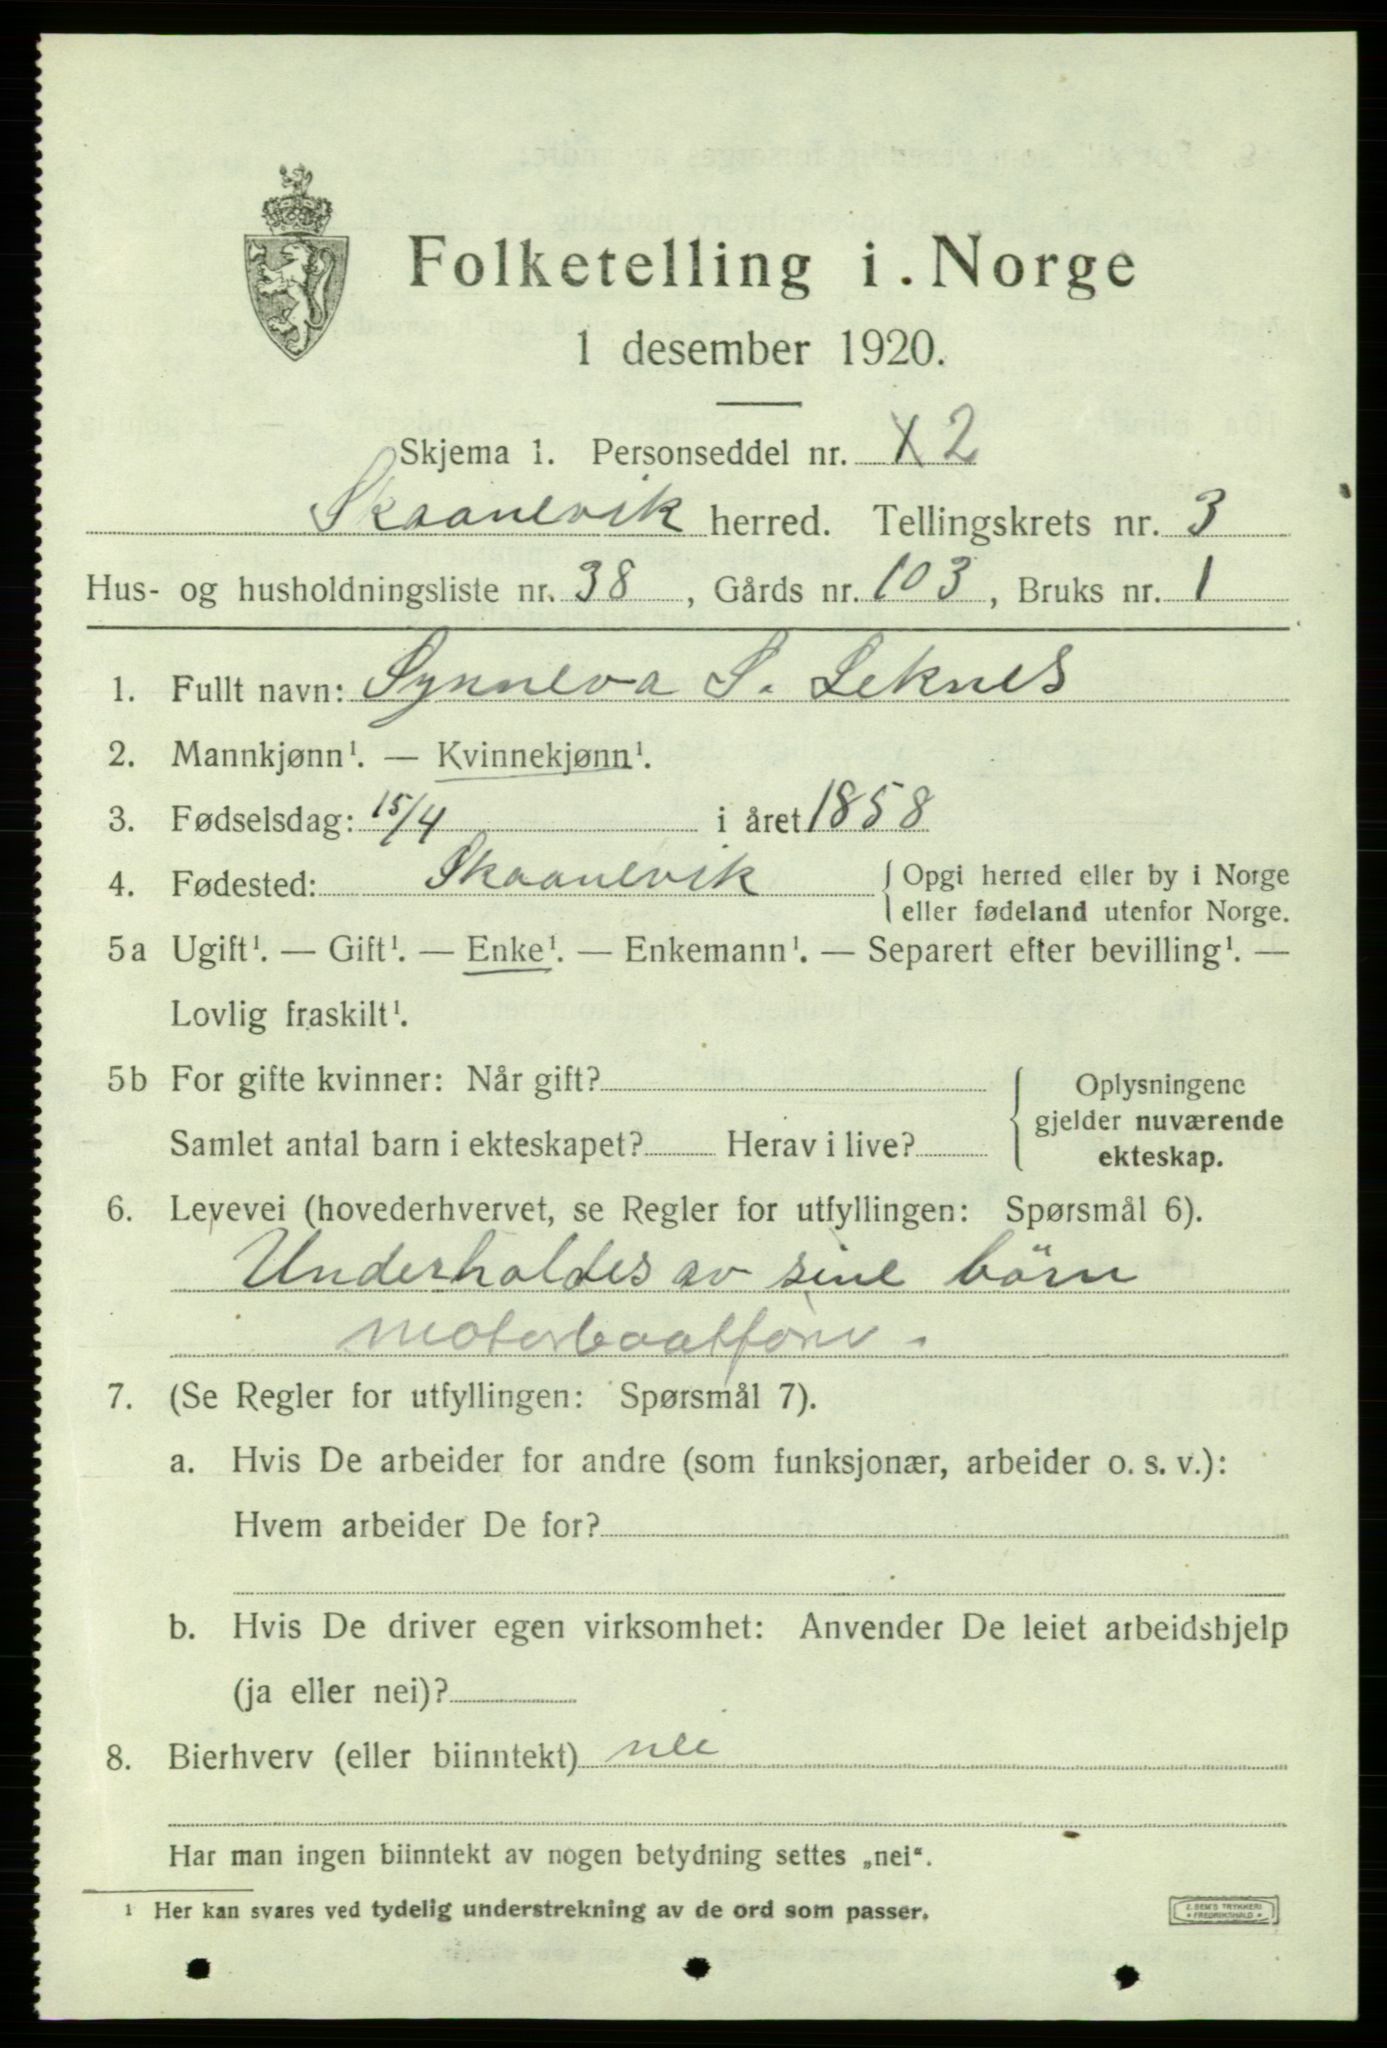 Folketelling i. Norge
1 desember 1920.
Skjema 1. Personseddel nr. X2
Skaanevik herred. Tellingskrets nr. 3
Hus- og husholdningsliste nr. 38, Gårds nr. 103, Bruks nr. 1
1. Fullt navn: Synneva S. Leknes
2. Mannkjønn¹. — Kvinnekjønn¹.
3. Fødselsdag: 15/4 i året 1858
4. Fødested: Skaanevik { Opgi herred eller by i Norge
eller fødeland utenfor Norge.
5a Ugift¹. — Gift¹. — Enke¹. — Enkemann¹. — Separert efter bevilling¹. —
Lovlig fraskilt¹.
5b For gifte kvinner: Når gift? { Oplysningene
gjelder nuværende
Samlet antal barn i ekteskapet? Herav i live?
ekteskap.
6. Levevei (hovederhvervet, se Regler for utfyllingen: Spørsmål 6).
Underholdes av sine börn
motorbaatförer.
7. (Se Regler for utfyllingen: Spørsmål 7).
a. Hvis De arbeider for andre (som funksjonær, arbeider o. s. v.):
Hvem arbeider De for?
b. Hvis De driver egen virksomhet: Anvender De leiet arbeidshjelp
(ja eller nei)?
8. Bierhverv (eller biinntekt) nei
Har man ingen biinntekt av nogen betydning settes „nei“.
¹ Her kan svares ved tydelig understrekning av de ord som passer.
E. SEM'S TRYKKERI
* FREDRIKSHALD *